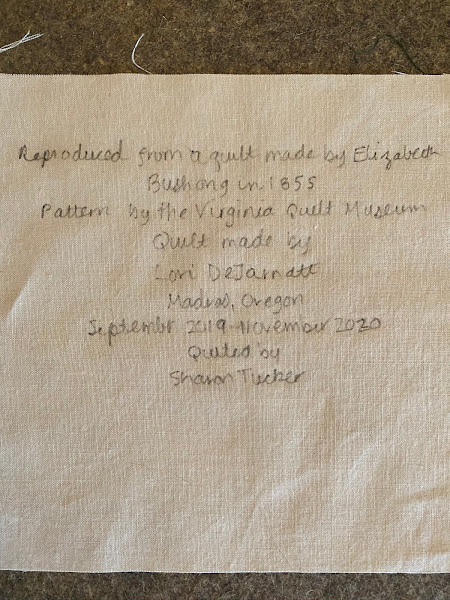 Reproduced from a quilt made by Elizabeth
Bushong in 1855
Pattern by the Virginia Quilt Museum
Quilt made by
Lori DeJarnatt
Madras, Oregon
Septembr 2019-November 2020
Quilted by
Sharon Tucker